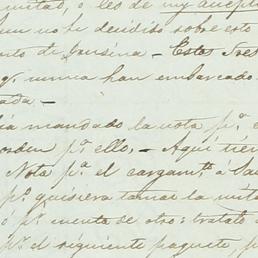 mitad, o les de my acepto
un no he decidido sobre este
de Gousina - Estos Sres
nunca han embarcado
ada -
ia mandado la nota pr. e
orden pr. ello. - Aqui tien
Nota pa. el cargamto. á
pr. quisiera tomar la mita
ó pr. cuenta de otro: trataré a
pr. el siguiente paquete, p